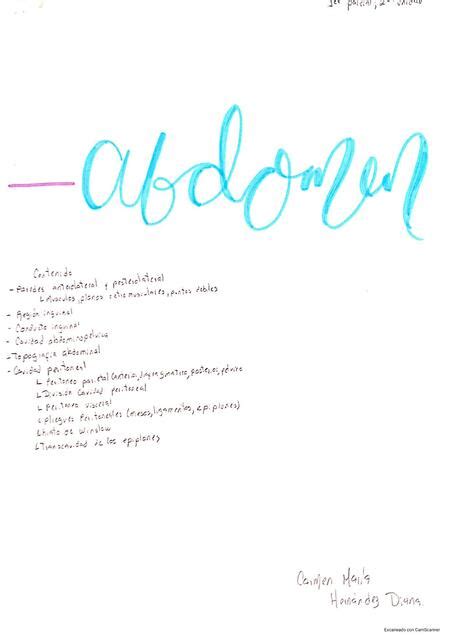 1er parcial, 2da unidad
abdomen
Contenido
- Paredes anterolateral y posterolateral
↳ Músculos, planos retromusculares, puntos débiles
- Región inguinal
- Conducto inguinal
- Cavidad abdominopélvica
- Topografía abdominal
- Cavidad peritoneal
↳ Peritoneo parietal (anterior, diafragmático, posterior, pélvico
↳ División cavidad peritoneal
↳ Peritoneo visceral
↳ Pliegues Peritoneales (mesos, ligamentos, epiplones)
↳ Hiato de Winslow
↳ Transcavidad de los epiplones
Carmen María
Hernández Diana
Escaneado con CamScanner